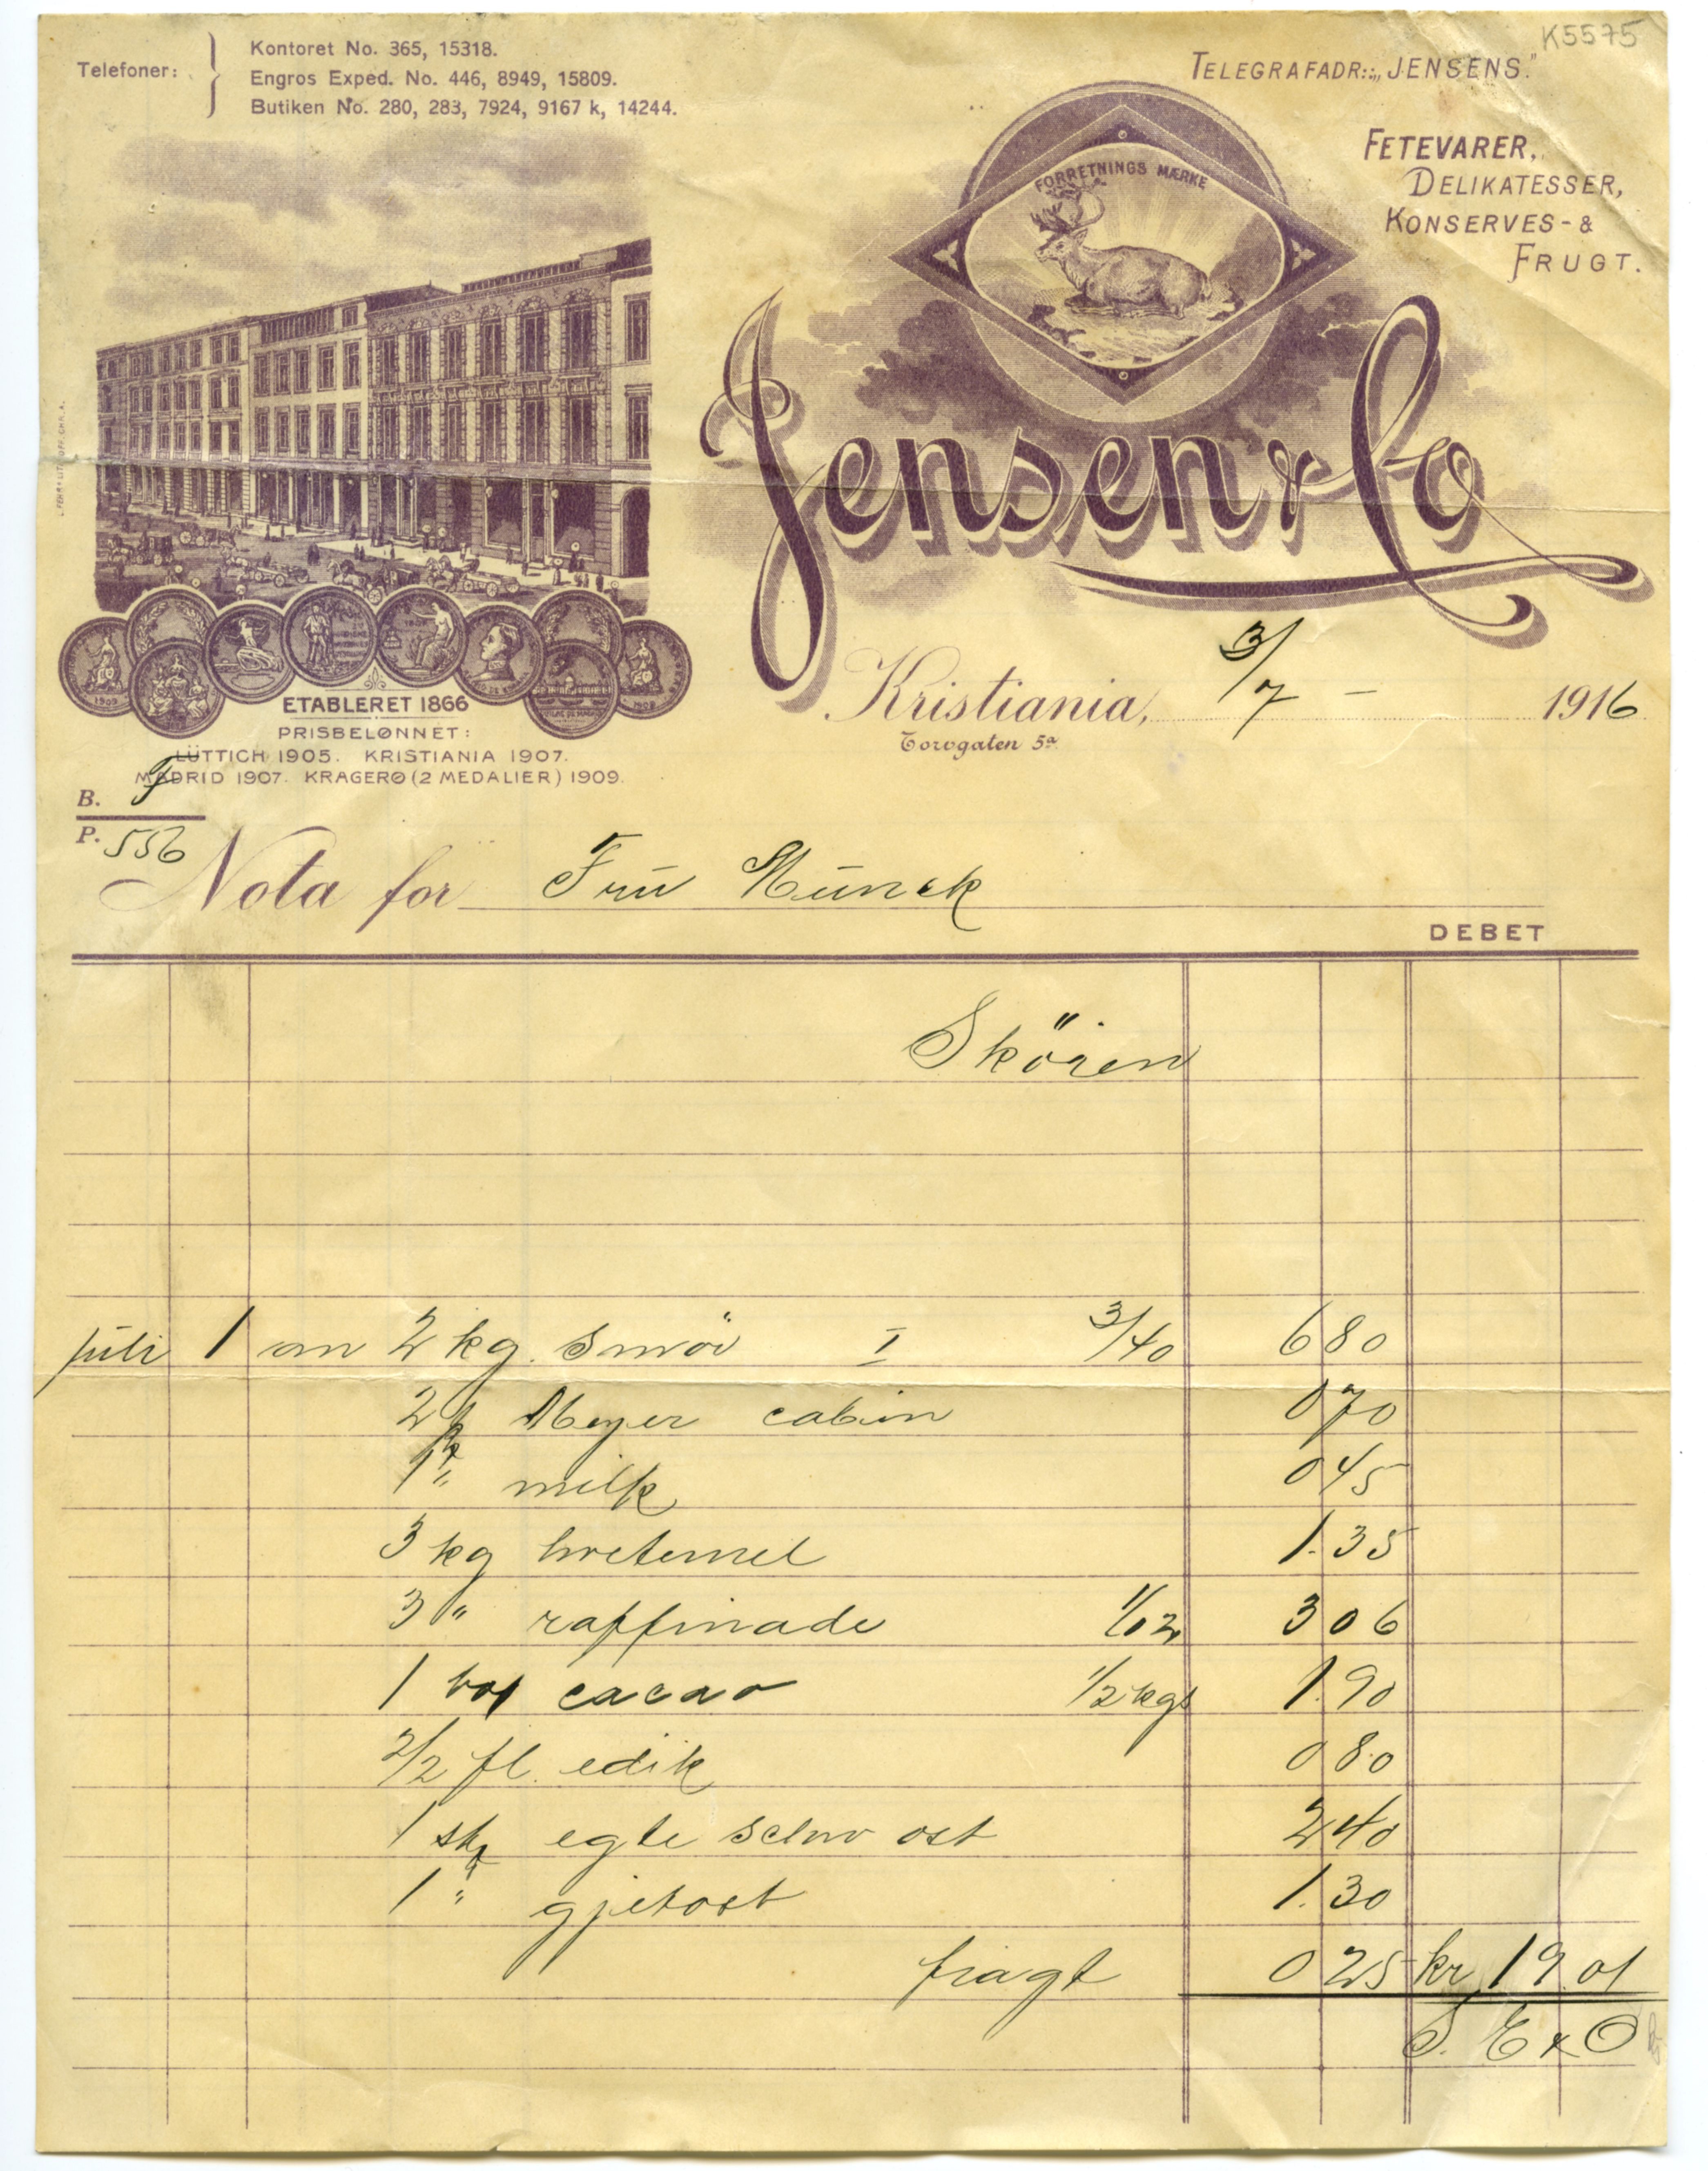 K5575
Telefoner:
Kontoret No. 365, 15318.
Engros Exped. No. 446, 8949, 15809.
Butiken No. 280, 283, 7924, 9167 k, 14244.
TELEGRAFADR.: „JENSENS."
FETEVARER,
DELIKATESSER,
KONSERVES- &
FRUGT.
FORRETNINGS MÆRKE
Jensen & Co
ETABLERET 1866
PRISBELØNNET:
LÜTTICH 1905. KRISTIANIA 1907.
MADRID 1907. KRAGERØ (2 MEDALIER) 1909.
Kristiania, 3/7 - 1916
Torvgaten 5a
B.
P. 556
Nota for Frŭ Mŭnck
DEBET
Skören
jŭli 1 an 2 kg. Smör I 3/40 6 80
2 Meyer cabin 0 70
1 " milk 0 45
3 kg hvetemel 1.35
3 " raffinade 1/02 3 06
1 cacao 1/2 kgs 1.90
2/2 fl. edik 0 80
1 stk egte ost 2 40
1 " gjetost 1.30
fragt 0 25 kr 19.01
S. E & O